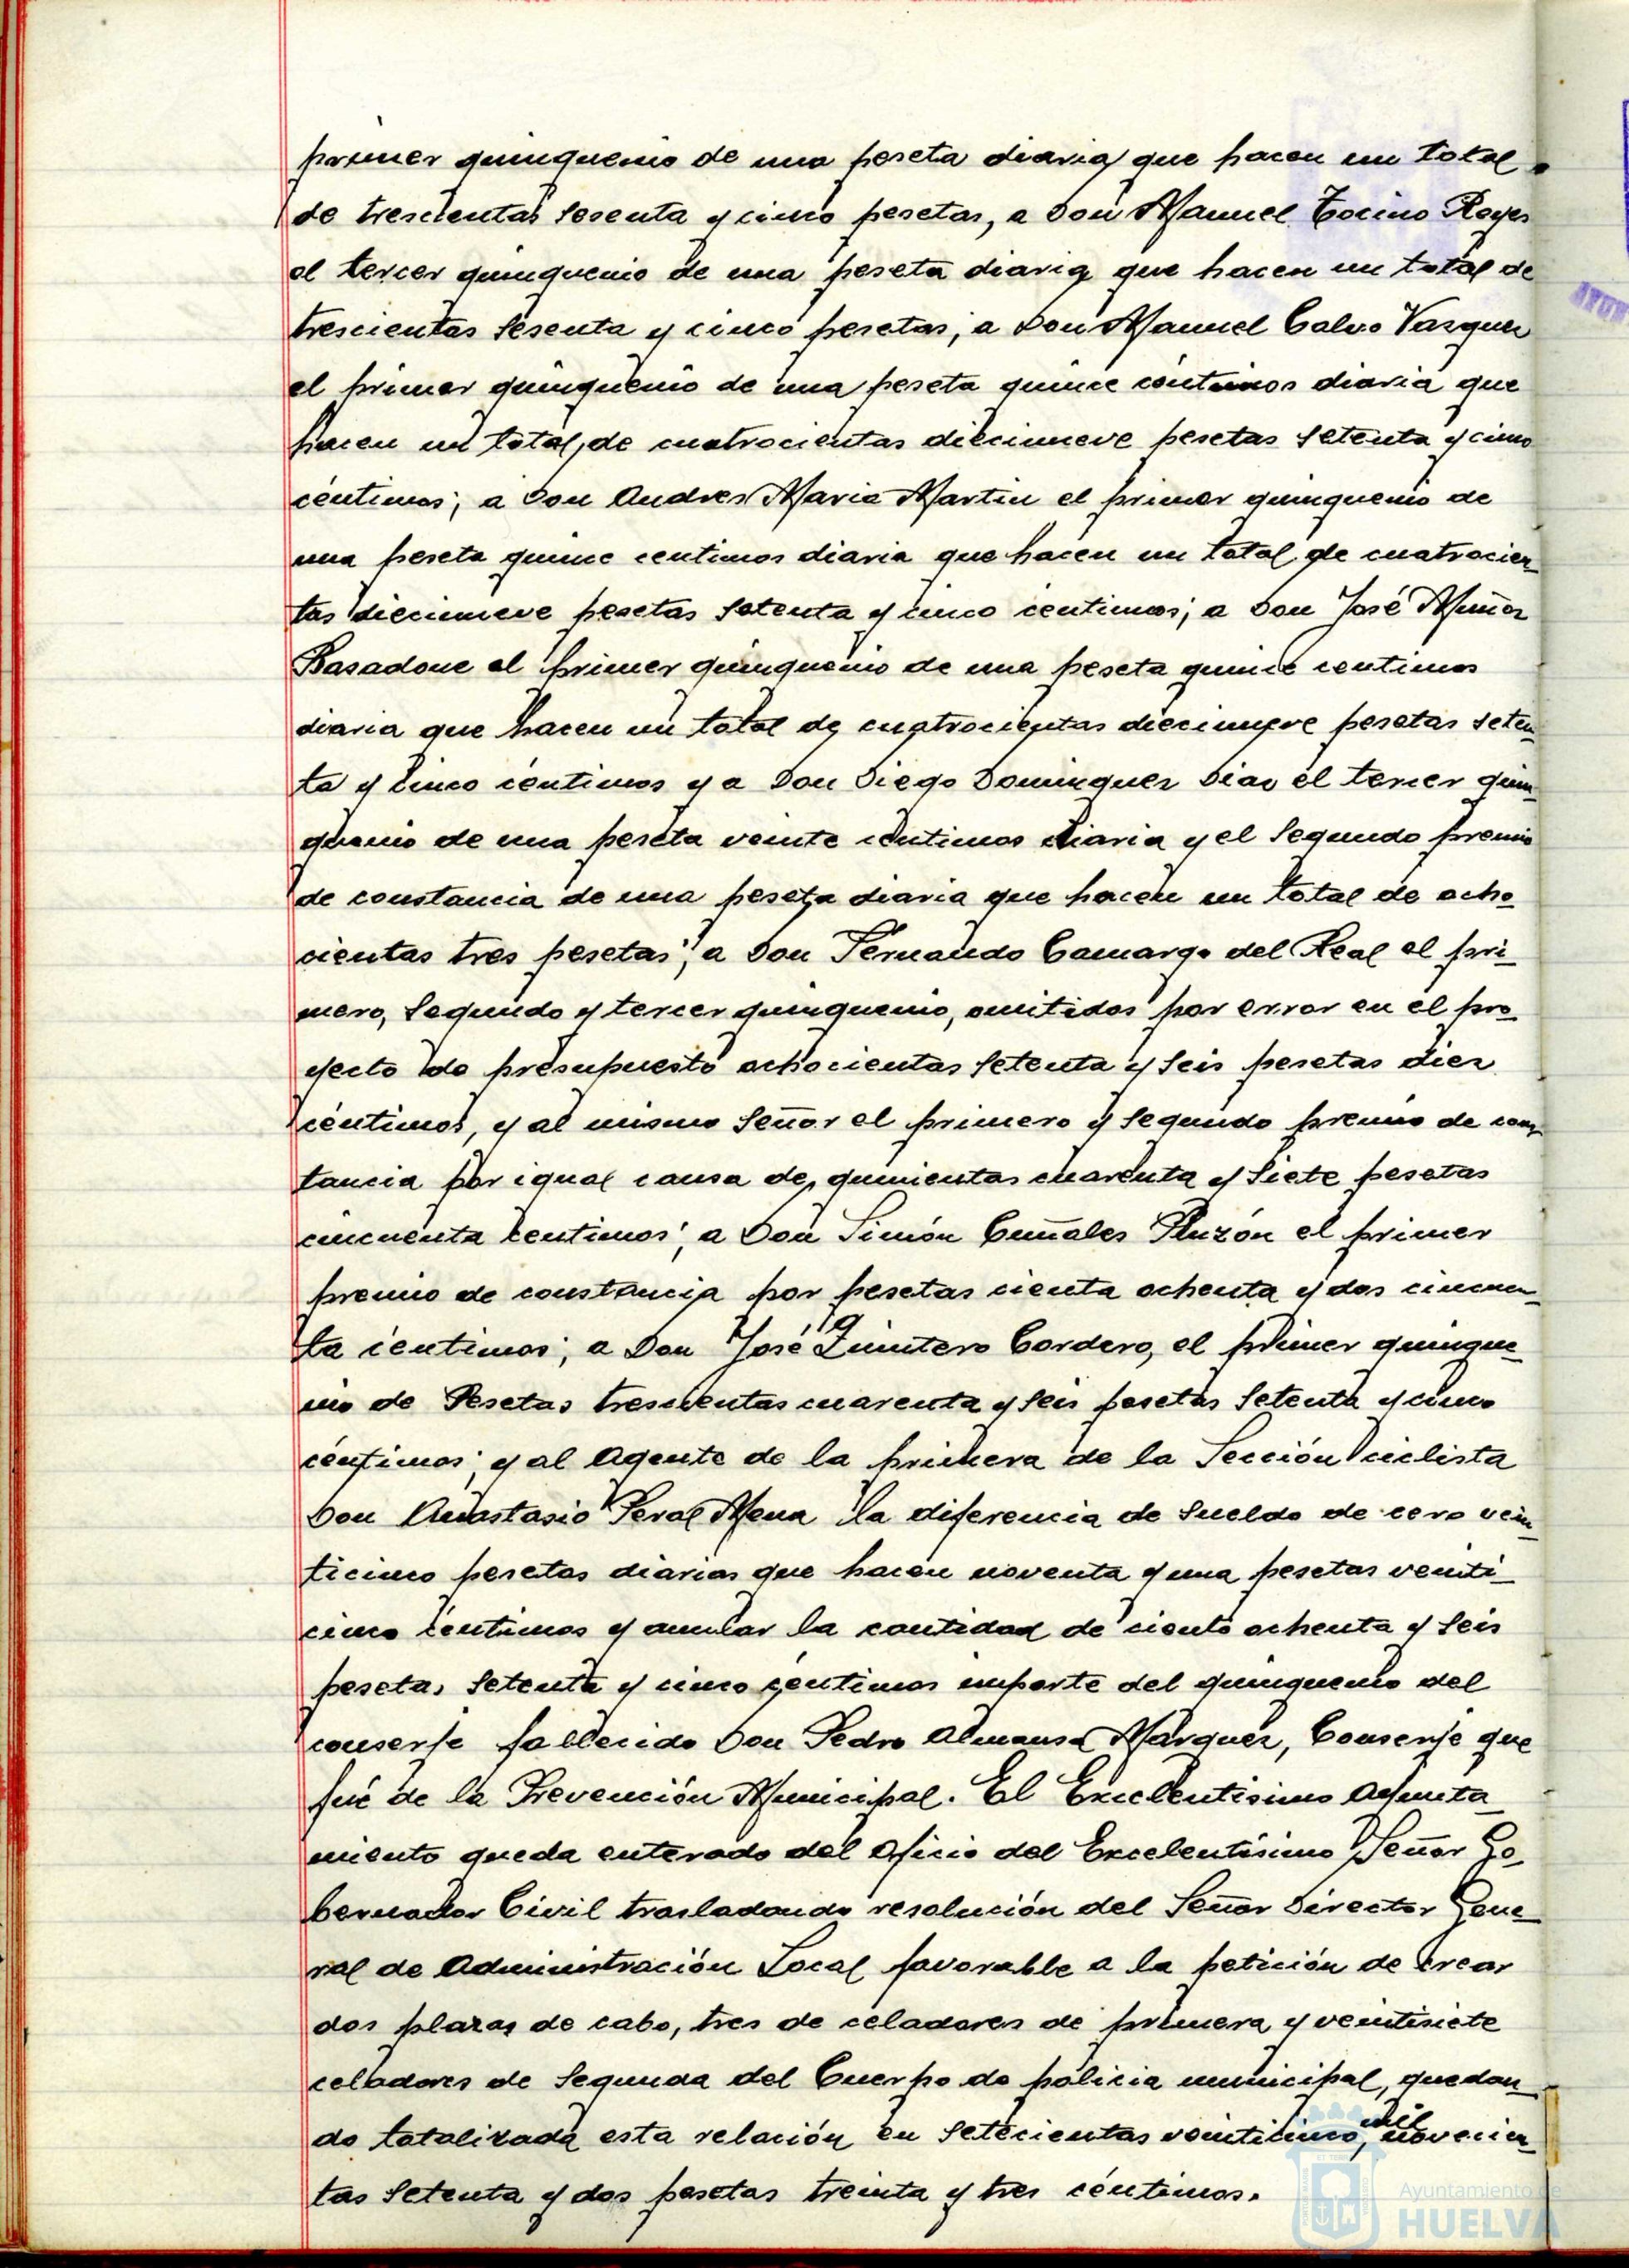 primer quinquenio de una peseta diaria que hacen un total
de trescientas sesenta y cinco pesetas, a Don Manuel Tocino Reyes
el tercer quinquenio de una peseta diaria que hacen un total de
trescientas sesenta y cinco pesetas; a Don Manuel Calvo Vazquez
el primer quinquenio de una peseta quince céntimos diaria que
hacen un total, de cuatrocientas diecinueve pesetas setenta y cinco
céntimos; a Don Andres Maria Martin el primer quinquenio de
una peseta quince centimos diaria que hacen un total de cuatrocien-
tas diecinueve pesetas setenta y cinco centimos; a Don José Muñoz
Basadone el primer quinquenio de una peseta quince centimos
diaria que hacen un total de cuatrocientas diecinueve pesetas seten-
ta y cinco céntimos y a Don Diego Dominguez Diaz el tercer quin-
quenio de una peseta veinte céntimos diaria y el segundo premio
de constancia de una peseta diaria que hacen un total de ocho-
cientas tres pesetas; a Don Fernando Camargo del Real el pri-
mero, segundo y tercer quinquenio, omitidos por error en el pro-
yecto de presupuesto ochocientas setenta y seis pesetas diez
céntimos, y al mismo Señor el primero y segundo premio de cons-
tancia por igual causa de, quinientas cuarenta y siete pesetas
cincuenta centimos; a Don Simón Cuñales Pluzón el primer
premio de constancia por pesetas cienta ochenta y dos cincuen-
ta céntimos; a Don José Quintero Cordero, el primer quinque-
nio de Pesetas trescientas cuarenta y seis pesetas setenta y cinco
céntimos; y al Agente de la primera de la Sección ciclista
Don Anastasio Peral Mena la diferencia de sueldo de cero vein-
ticinco pesetas diarias que hacen noventa y una pesetas veinti-
cinco céntimos y anular la cantidad de ciento ochenta y seis
pesetas setenta y cinco céntimos importe del quinquenio del
conserje fallecido Don Pedro Almansa Marquez, Conserje que
fué de la Prevención Municipal. El Excelentisimo Ayunta-
miento queda enterado del oficio del Excelentísimo Señor Go-
bernador Civil trasladando resolución del Señor Director Gene-
ral de Administración Local favorable a la petición de crear
dos plazas de cabo, tres de celadores de primera y veintisiete
celadores de segunda del Cuerpo de policia municipal, quedan-
do totalizada esta relación en setecientas veinticinco, mil novecien-
tas setenta y dos pesetas treinta y tres céntimos.
Ayuntamiento de
HUELVA